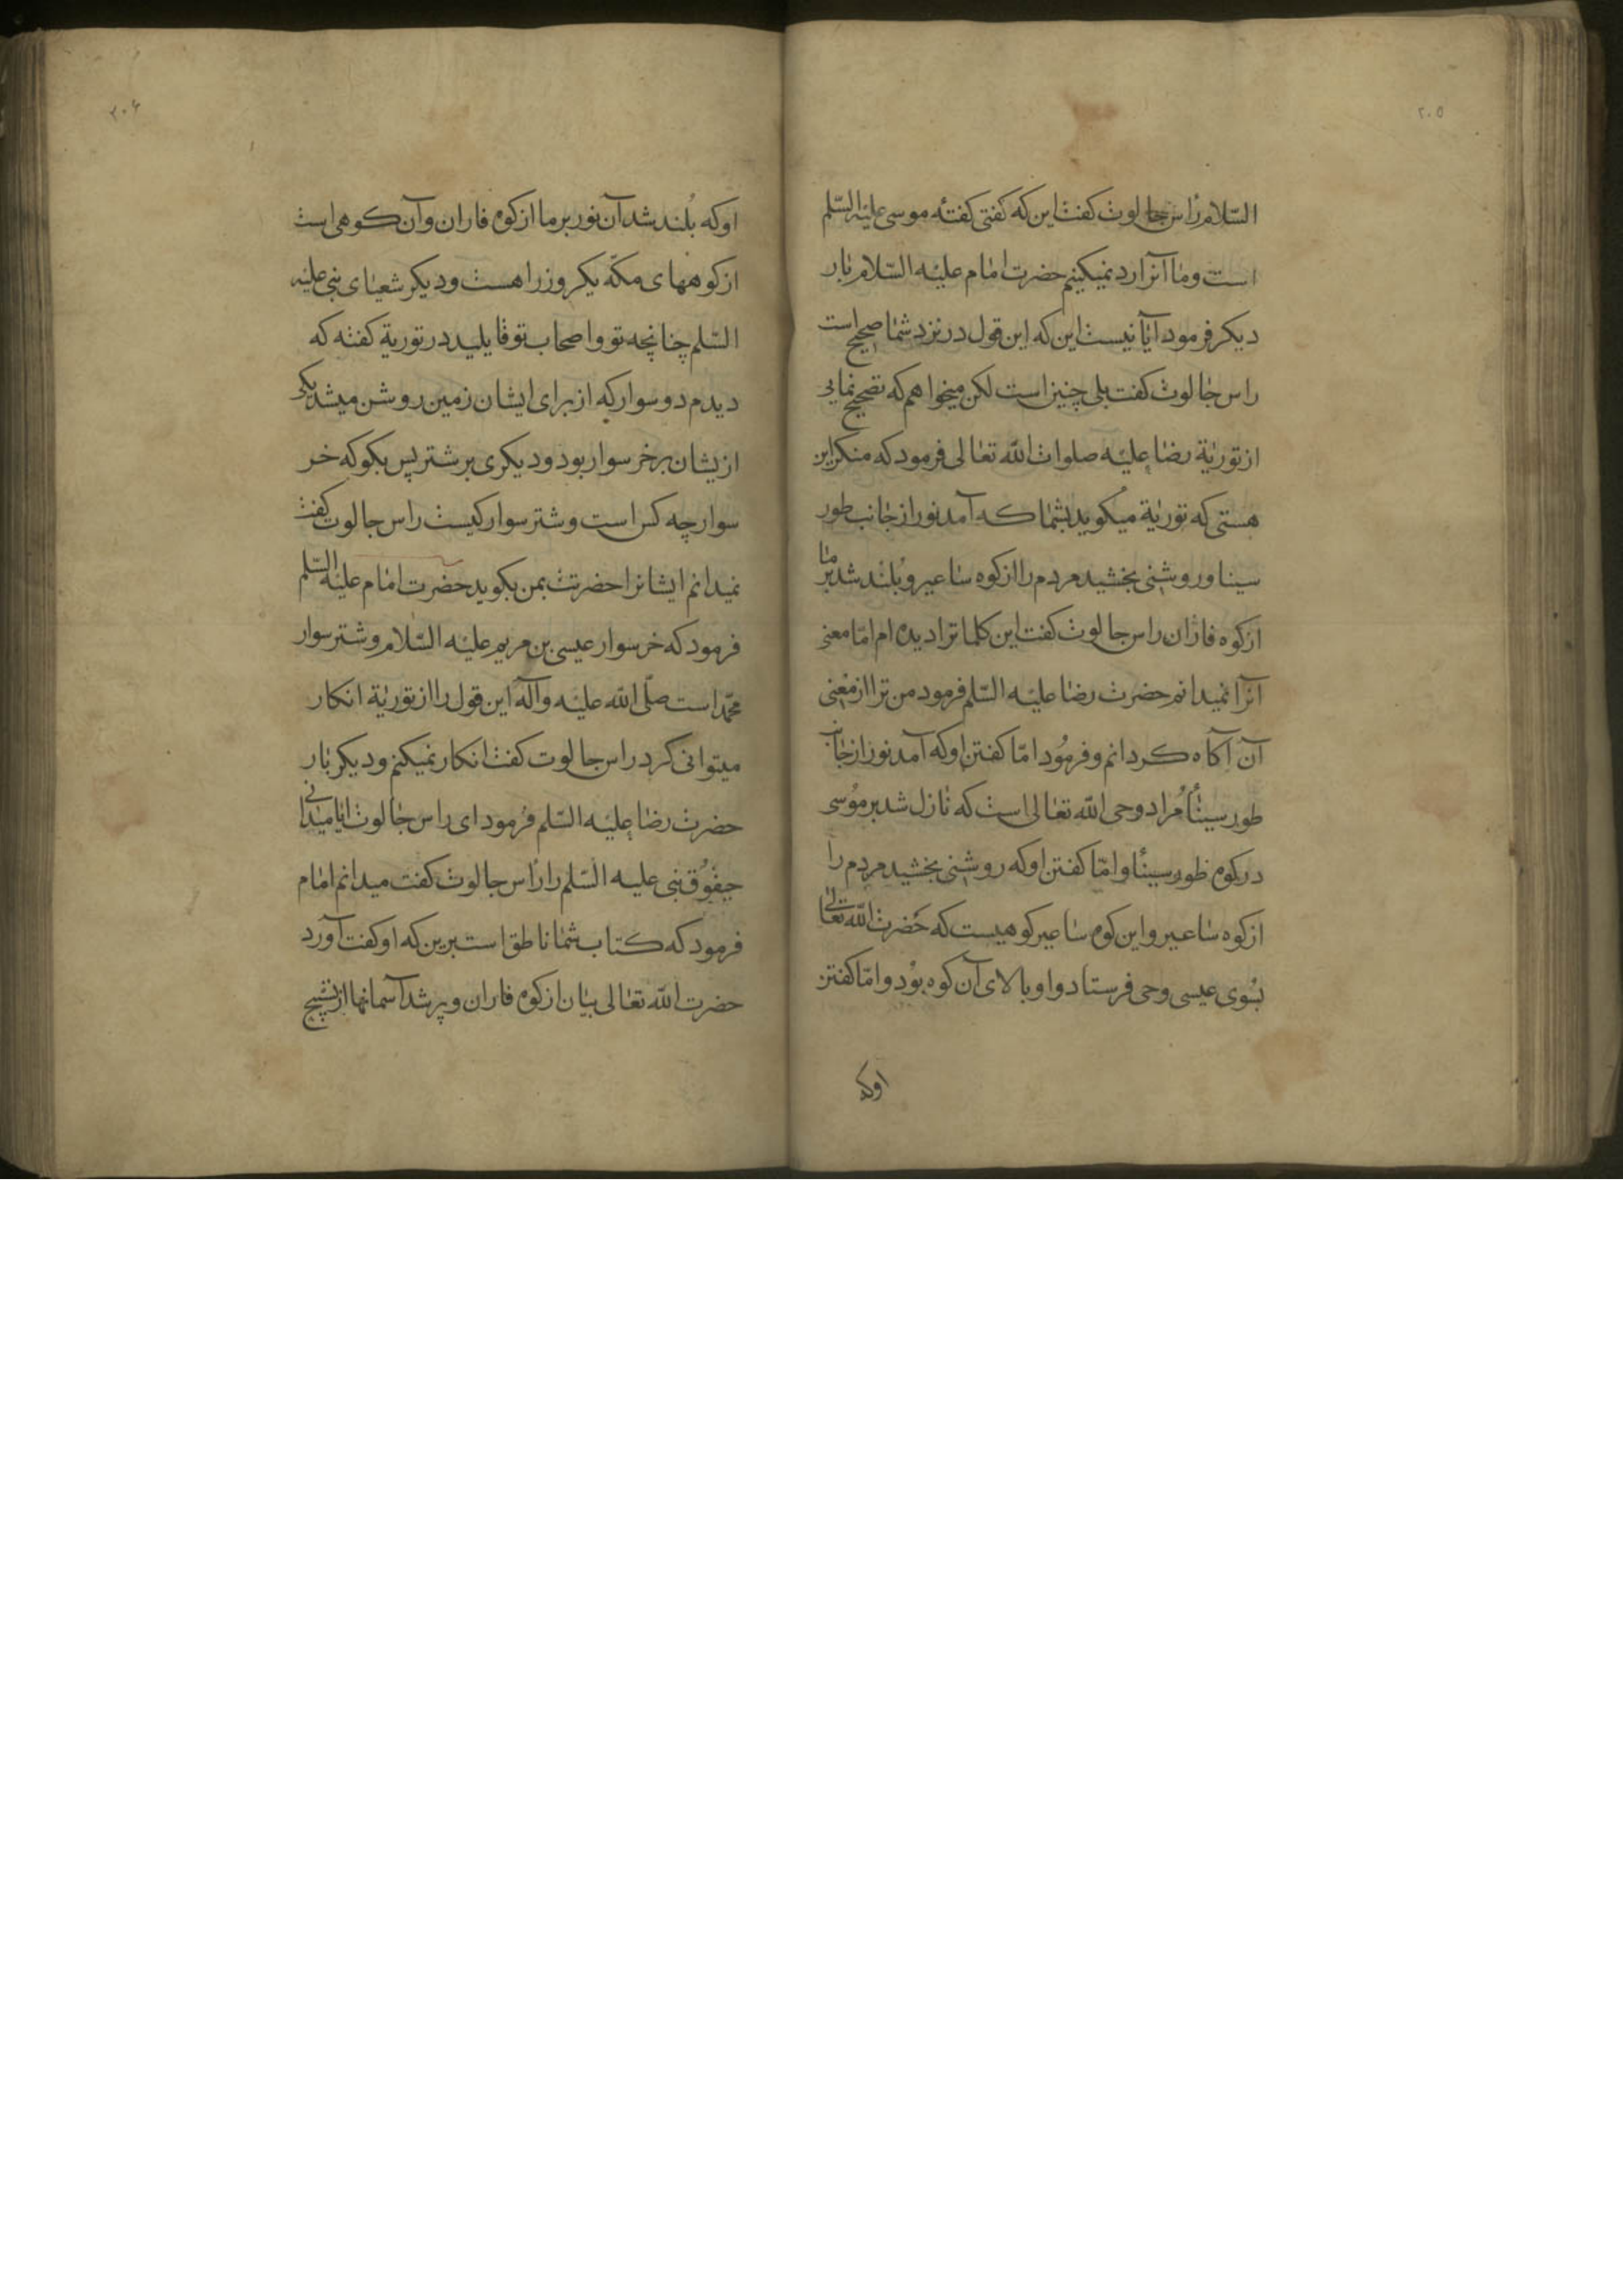 ۲۰۵
السّلام راس جالوت کفت این که کفتی کفتهٔ موسی علیه السّلم
است و ما آنرا رد نمیکنیم حضرت امام علیه السّلام بار
دیکر فرمود آیا نیست این که این قول در نزد شما صحیح است
راس جالوت کفت بلی چنین است لکن میخواهم که تصحیح نمایی
از توریة رضا علیه صلوات اللّه تعالی فرمود که منکر این
هستی که توریة میکوید بشما که آمد نور از جانب طور
سینا و روشنی بخشید مردم را از کوه ساعیر و بُلند شد بر ما
از کوه فاران راس جالوت کفت این کلماترا دیده ام امّا معنی
آنرا نمیدانم حضرت رضا علیه السّلم فرمود من ترا از معنی
آن آکاه کردانم و فرمُود امّا کفتن او که آمد نور از جانب
طور سینا مُراد وحی اللّه تعالی است که نازل شد بر مُوسی
در کوه طور سینا و امّا کفتن او که روشنی بخشید مردم را
از کوه ساعیر و این کوه ساعیر کوهیست که حَضرت اللّه تعالی
بسُوی عیسی وحی فرستاد و او بالای آن کوه بوُد و امّا کفتن
اوکه
۲۰۶
اوکه بُلند شد آن نور بر ما از کوه فاران و آن کوهی است
از کوههای مکّه یکروز راهست و دیکر شعیای نبی علیه
السّلم چنانچه تو و اصحاب تو قایلید در توریة کفته که
دیدم دو سوار که از برای ایشان زمین روشن میشد یکی
ازیشان بر خر سوار بود و دیکری بر شتر پس بکو که خر
سوار چه کس است و شتر سوار کیست راس جالوت کفت
نمیدانم ایشانرا حضرتت بمن بکوید حضرت امام علیه السّلم
فرمود که خر سوار عیسی بن مریم علیه السّلام و شتر سوار
محمّد است صلّی اللّه علیه و آله این قول را از توریة انکار
میتوانی کرد راس جالوت کفت انکار نمیکنم و دیکر بار
حضرت رضا علیه السّلم فرمود ای راس جالوت ایا میدانی
حیقوُق نبی علیه السّلم را راس جالوت کفت میدانم امام
فرمود که کتاب شما ناطق است برین که او کفت آورد
حضرت اللّه تعالی بیان از کوه فاران و پر شد آسمانها از تسبیح